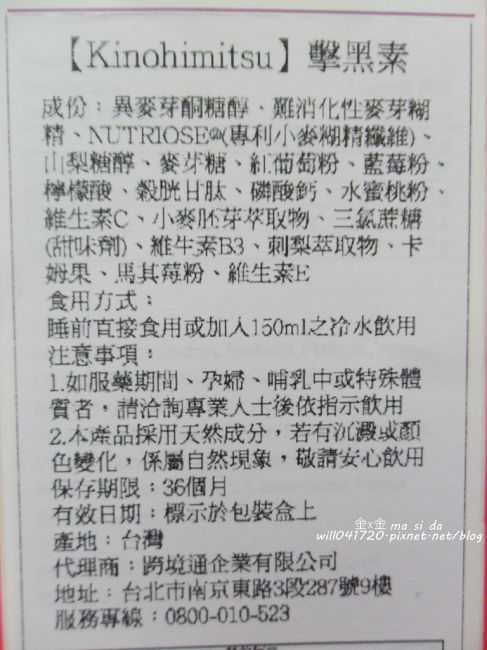 【Kinohimitsu】擊黑素
成份：異麥芽酮糖醇、難消化性麥芽糊
精、NUTRIOSE®(專利小麥糊精纖維)、
山梨糖醇、麥芽糖、紅葡萄粉、藍莓粉、
檸檬酸、穀胱甘肽、磷酸鈣、水蜜桃粉、
維生素C、小麥胚芽萃取物、三氯蔗糖
(甜味劑)、維生素B3、刺梨萃取物、卡
姆果、馬其莓粉、維生素E
食用方式：
睡前直接食用或加入150ml之冷水飲用
注意事項：
1.如服藥期間、孕婦、哺乳中或特殊體
質者，請洽詢專業人士後依指示飲用
2.本產品採用天然成分，若有沉澱或顏
色變化，係屬自然現象，敬請安心飲用
保存期限：36個月
有效日期：標示於包裝盒上
產地：台灣
代理商：跨境通企業有限公司
地址：台北市南京東路3段287號9樓
服務專線：0800-010-523
金x金 ma si da
will041720.pixnet.net/blog